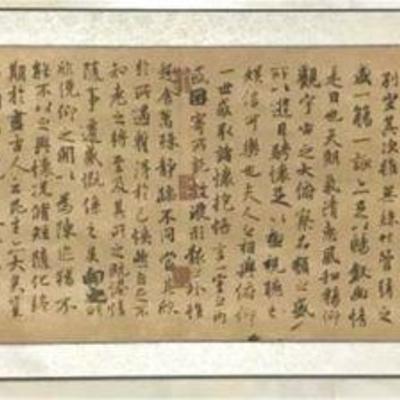 列坐其次雖無絲竹管絃之
盛一觴一詠亦足以暢敘幽情
是日也天朗氣清惠風和暢仰
觀宇宙之大俯察品類之盛
所以遊目騁懷足以極視聽之
娛信可樂也夫人之相與俯仰
一世或取諸懷抱悟言一室之內
或因寄所託放浪形骸之外雖
趣舍萬殊靜躁不同當其欣
於所遇暫得於己快然自足不
知老之將至及其所之既惓情
隨事遷感慨係之矣向之所
欣俛仰之間以為陳跡猶不
能不以之興懷況脩短隨化終
期於盡古人云死生亦大矣豈